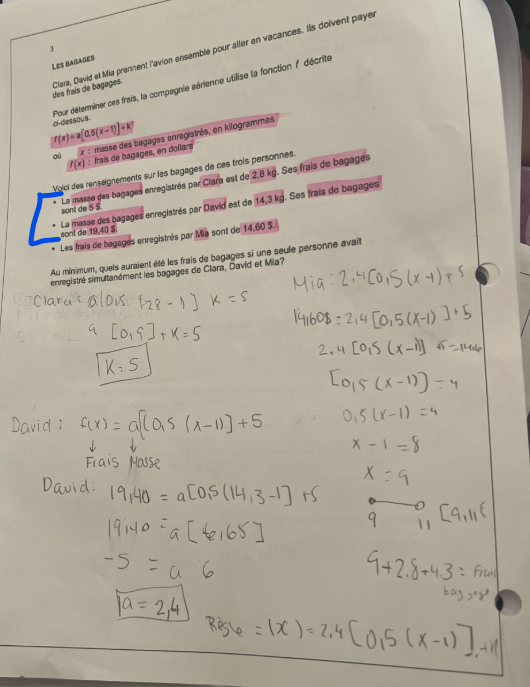 3
LES BAGAGES
Clara, David et Mia prennent l'avion ensemble pour aller en vacances. Ils doivent payer
des frais de bagages.
Pour déterminer ces frais, la compagnie aérienne utilise la fonction f décrite
ci-dessous.
f(x) = a[0,5(x-1)]+k
où x : masse des bagages enregistrés, en kilogrammes
f(x) : frais de bagages, en dollars
Voici des renseignements sur les bagages de ces trois personnes.
• La masse des bagages enregistrés par Clara est de 2,8 kg. Ses frais de bagages
sont de 5 $.
• La masse des bagages enregistrés par David est de 14,3 kg. Ses frais de bagages
sont de 19,40 $.
• Les frais de bagages enregistrés par Mia sont de 14,60 $.
Au minimum, quels auraient été les frais de bagages si une seule personne avait
enregistré simultanément les bagages de Clara, David et Mia?
Clara: a[0,5 (2,8 - 1] K = 5
a [0,9] + K = 5
K = 5
David: f(x) = a[(0,5 (x-1)] + 5
↓ ↓
Frais Masse
David: 19,40 = a[0,5(14,3-1] +5
19,40 = a [6,65]
-5 = a 6
a = 2,4
Mia: 2,4[0,5 (x-1) + 5
14,60$ = 2,4 [0,5 (x-1)] + 5
2.4 [0,5 (x-1)]
[0,5 (x-1)] = 4
0,5 (x-1) = 4
x - 1 = 8
x = 9
9 11 [9,11[
9+2.8+4.3 = Frais
bagages
Règle = (x) = 2,4 [0,5 (x-1)]